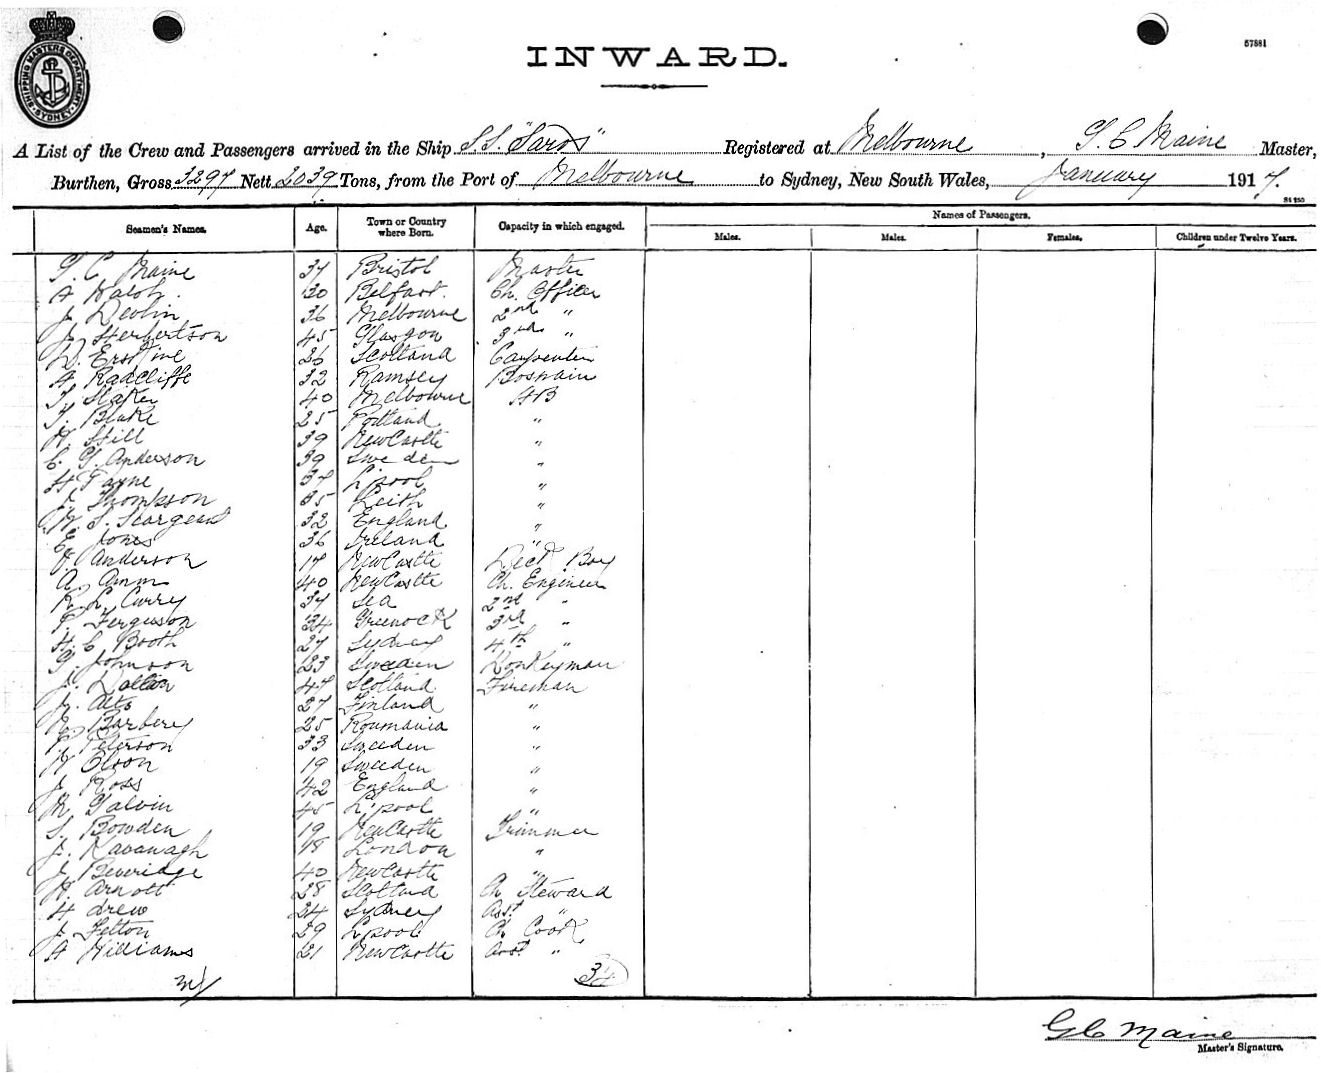 SHIPPING MASTERS DEPARTMENT SYDNEY
57881
INWARD.
A List of the Crew and Passengers arrived in the Ship S.S. "Saros" Registered at Melbourne, G. C Maine Master,
Burthen, Gross 3297 Nett 2039 Tons, from the Port of Melbourne to Sydney, New South Wales, January 1917.
Seamen's Names. Age. Town or Country where Born. Capacity in which engaged. Names of Passengers.
Males. Males. Females. Children under Twelve Years.
G. C Maine 37 Bristol Master
A Walsh 30 Belfast. Ch. Officer
J. Devlin 36 Melbourne 2nd "
J. Herbertson 45 Glasgow 3rd "
D. Erskine 26 Scotland Carpenter
A Radcliffe 32 Ramsey Boswain
Slater 40 Melbourne AB
Blake 25 Portland "
Hill 39 NewCastle "
C. G. Anderson 39 Sweden "
H. Payne 37 L'pool "
J. Thompson 35 Leith "
Seargeant 32 England "
E. Jones 36 Ireland "
Anderson 17 NewCastle Deck Boy
A. Amm 40 NewCastle Ch. Engineer
R. L. Curry 37 Sea 2nd "
P. Ferguson 34 Greenock 3rd "
H. C Booth 27 Sydney 4th "
G. Johnson 23 Sweeden Donkeyman
J. Dalton 47 Scotland Fireman
27 Finland "
Barbery 25 Roumania "
P. Peterson 33 Sweeden "
Olson 19 Sweeden "
J. Ross 42 England "
M Galvin 45 L'pool "
S. Bowden 19 NewCastle Trimmer
J. Kavanagh 18 London "
J. Beveridge 40 NewCastle "
Arnott 28 Scotland Ch Steward
H Drew 24 Sydney Asst "
J. Felton 29 L'pool Ch Cook
A Williams 21 NewCastle Asst "
34
G C Maine
Master's Signature.